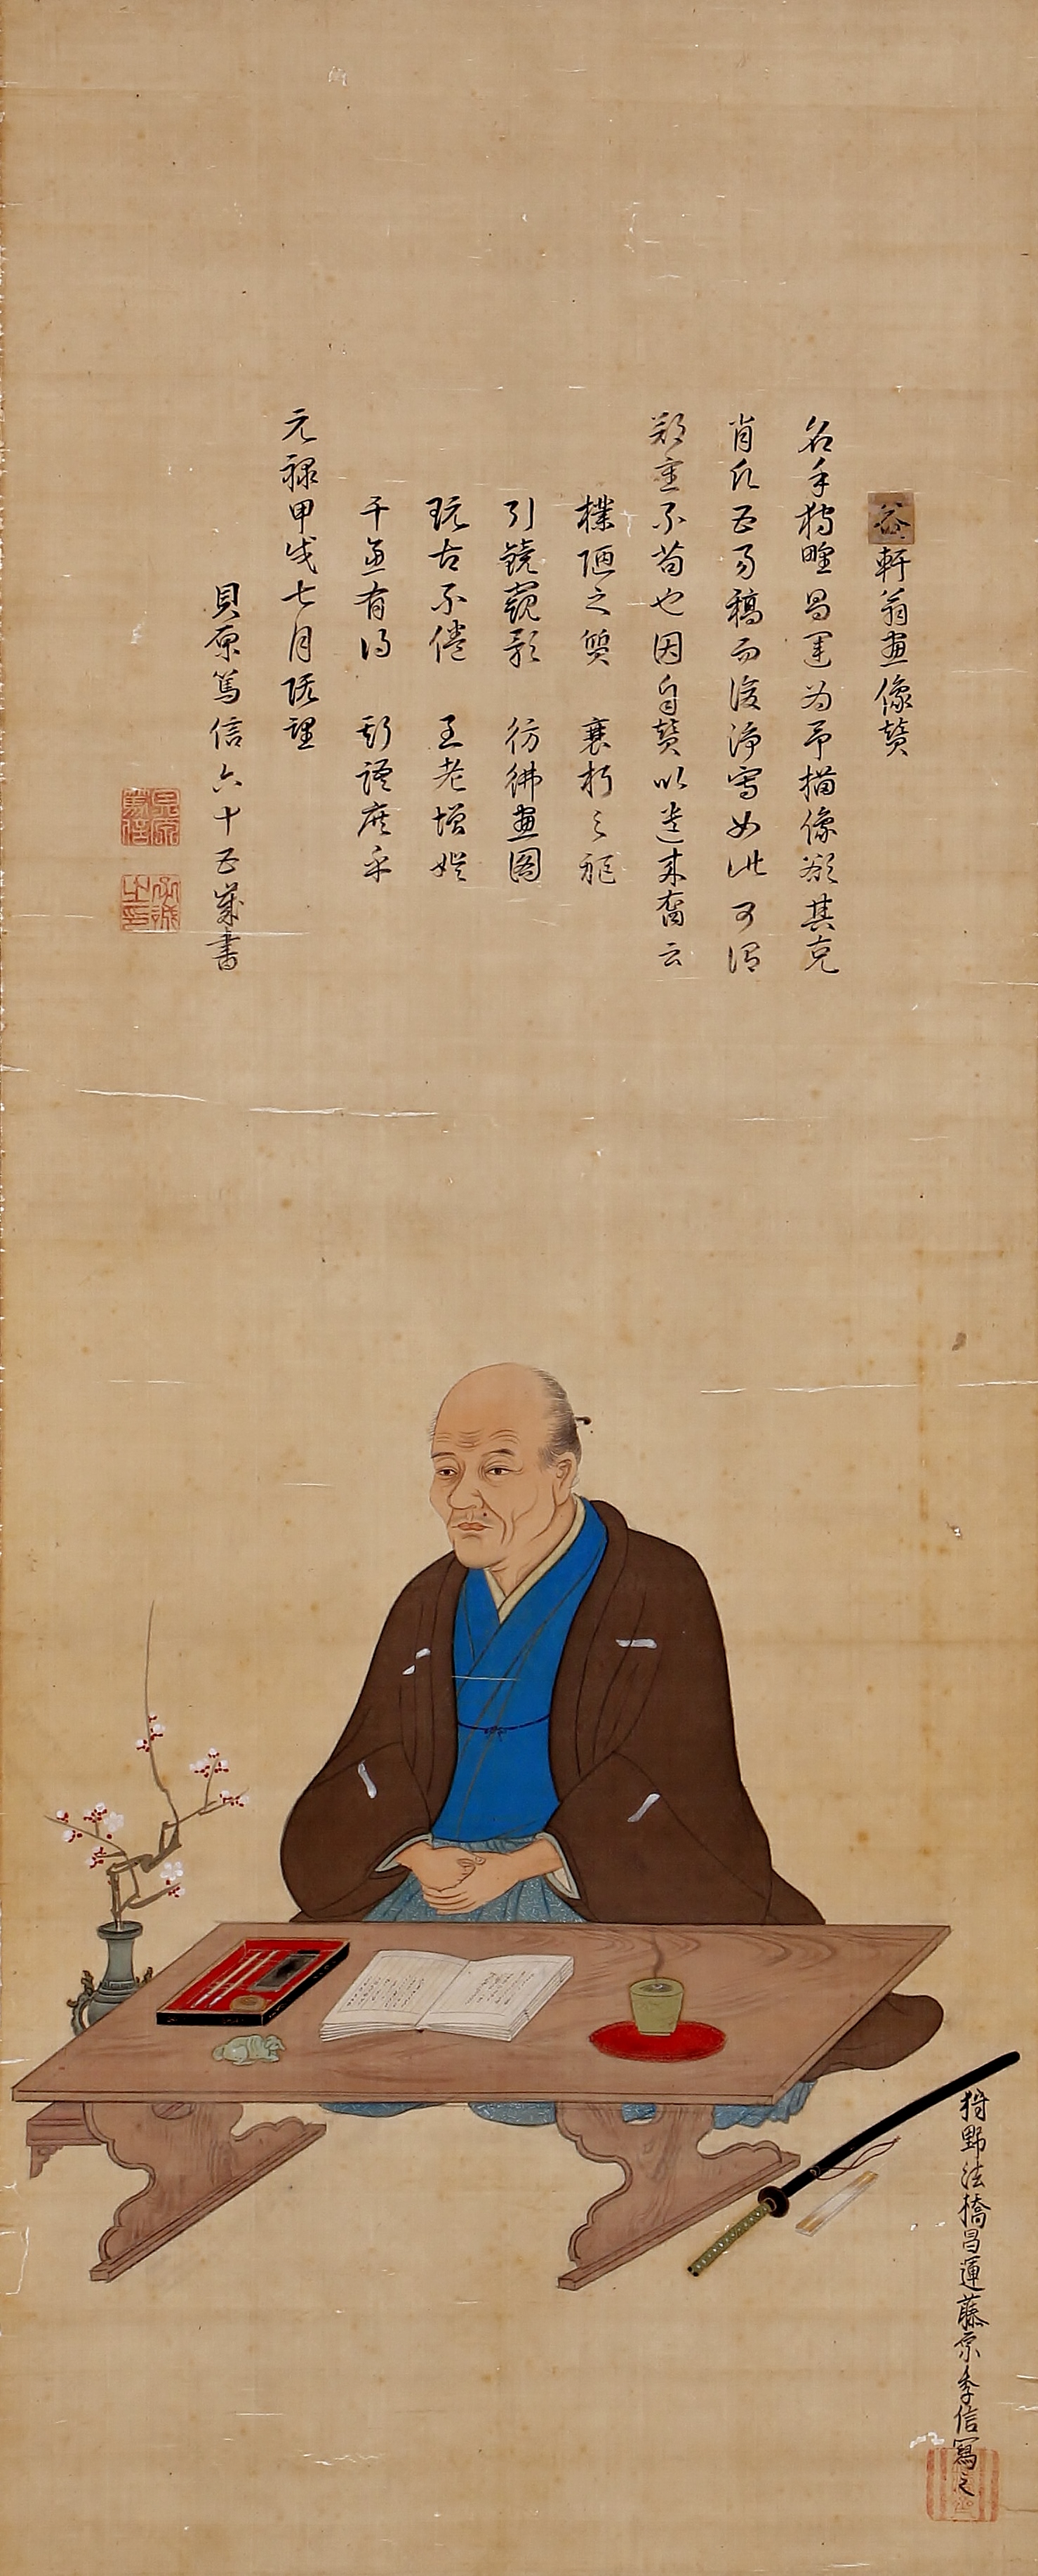 益軒翁画像賛
名手狩野昌運為予描像欲其克
肖凡五易稿而後浄写如此可謂
鄭重不苟也因自賛以造来裔云
樸陋之質 衰朽之軀
引鏡窺影 彷彿画図
玩古不倦 至老増娯
千慮有得 斯語庶乎
元禄甲戌七月既望
貝原篤信六十五歳書
狩野法橋昌運藤原季信写之